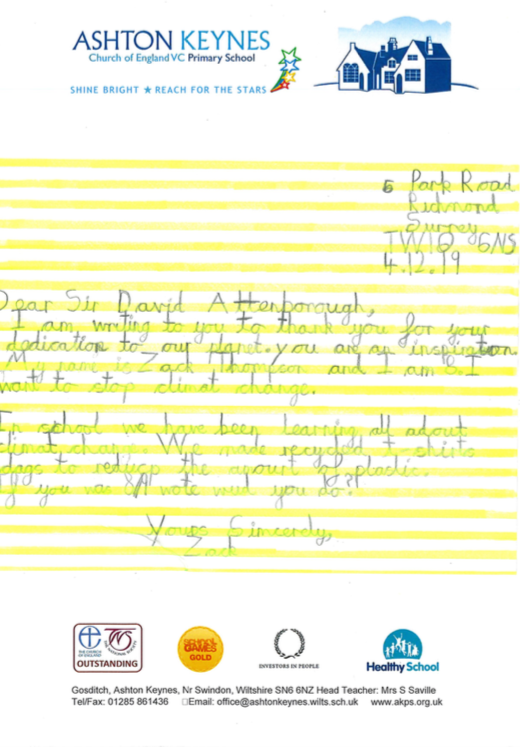 ASHTON KEYNES
Church of England VC Primary School
SHINE BRIGHT ★ REACH FOR THE STARS
5 Park Road
Richmond
Surrey
TW10 6NS
4.12.19
Dear Sir David Attenborough,
I am writing to you to thank you for your
dedication to our planet. you are an inspiration.
My name is Zack Thompson and I am 8. I
want to stop climat change.
In school we have been learning all adout
climat change. We made recycled t-shirts
dags to reduce the amount of plastic.
If you was 8 wote wud you do?
Yours Sincerely,
Zack
THE CHURCH OF ENGLAND
OUTSTANDING
SCHOOL GAMES
GOLD
INVESTORS IN PEOPLE
Healthy School
Gosditch, Ashton Keynes, Nr Swindon, Wiltshire SN6 6NZ Head Teacher: Mrs S Saville
Tel/Fax: 01285 861436 Email: office@ashtonkeynes.wilts.sch.uk www.akps.org.uk